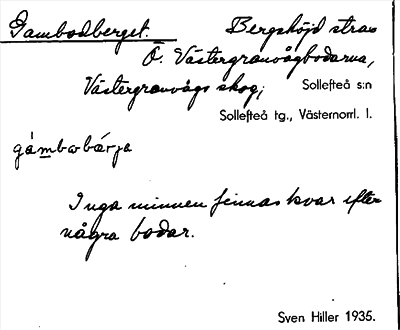 Gambodberget. Bergshöjd strax
Ö. Västergranvågbodarna,
Västergranvågs skog; Sollefteå s:n
Sollefteå tg., Västernorrl. l.
gámbωbárja
Inga minnen finnas kvar efter
några bodar.
Sven Hiller 1935.